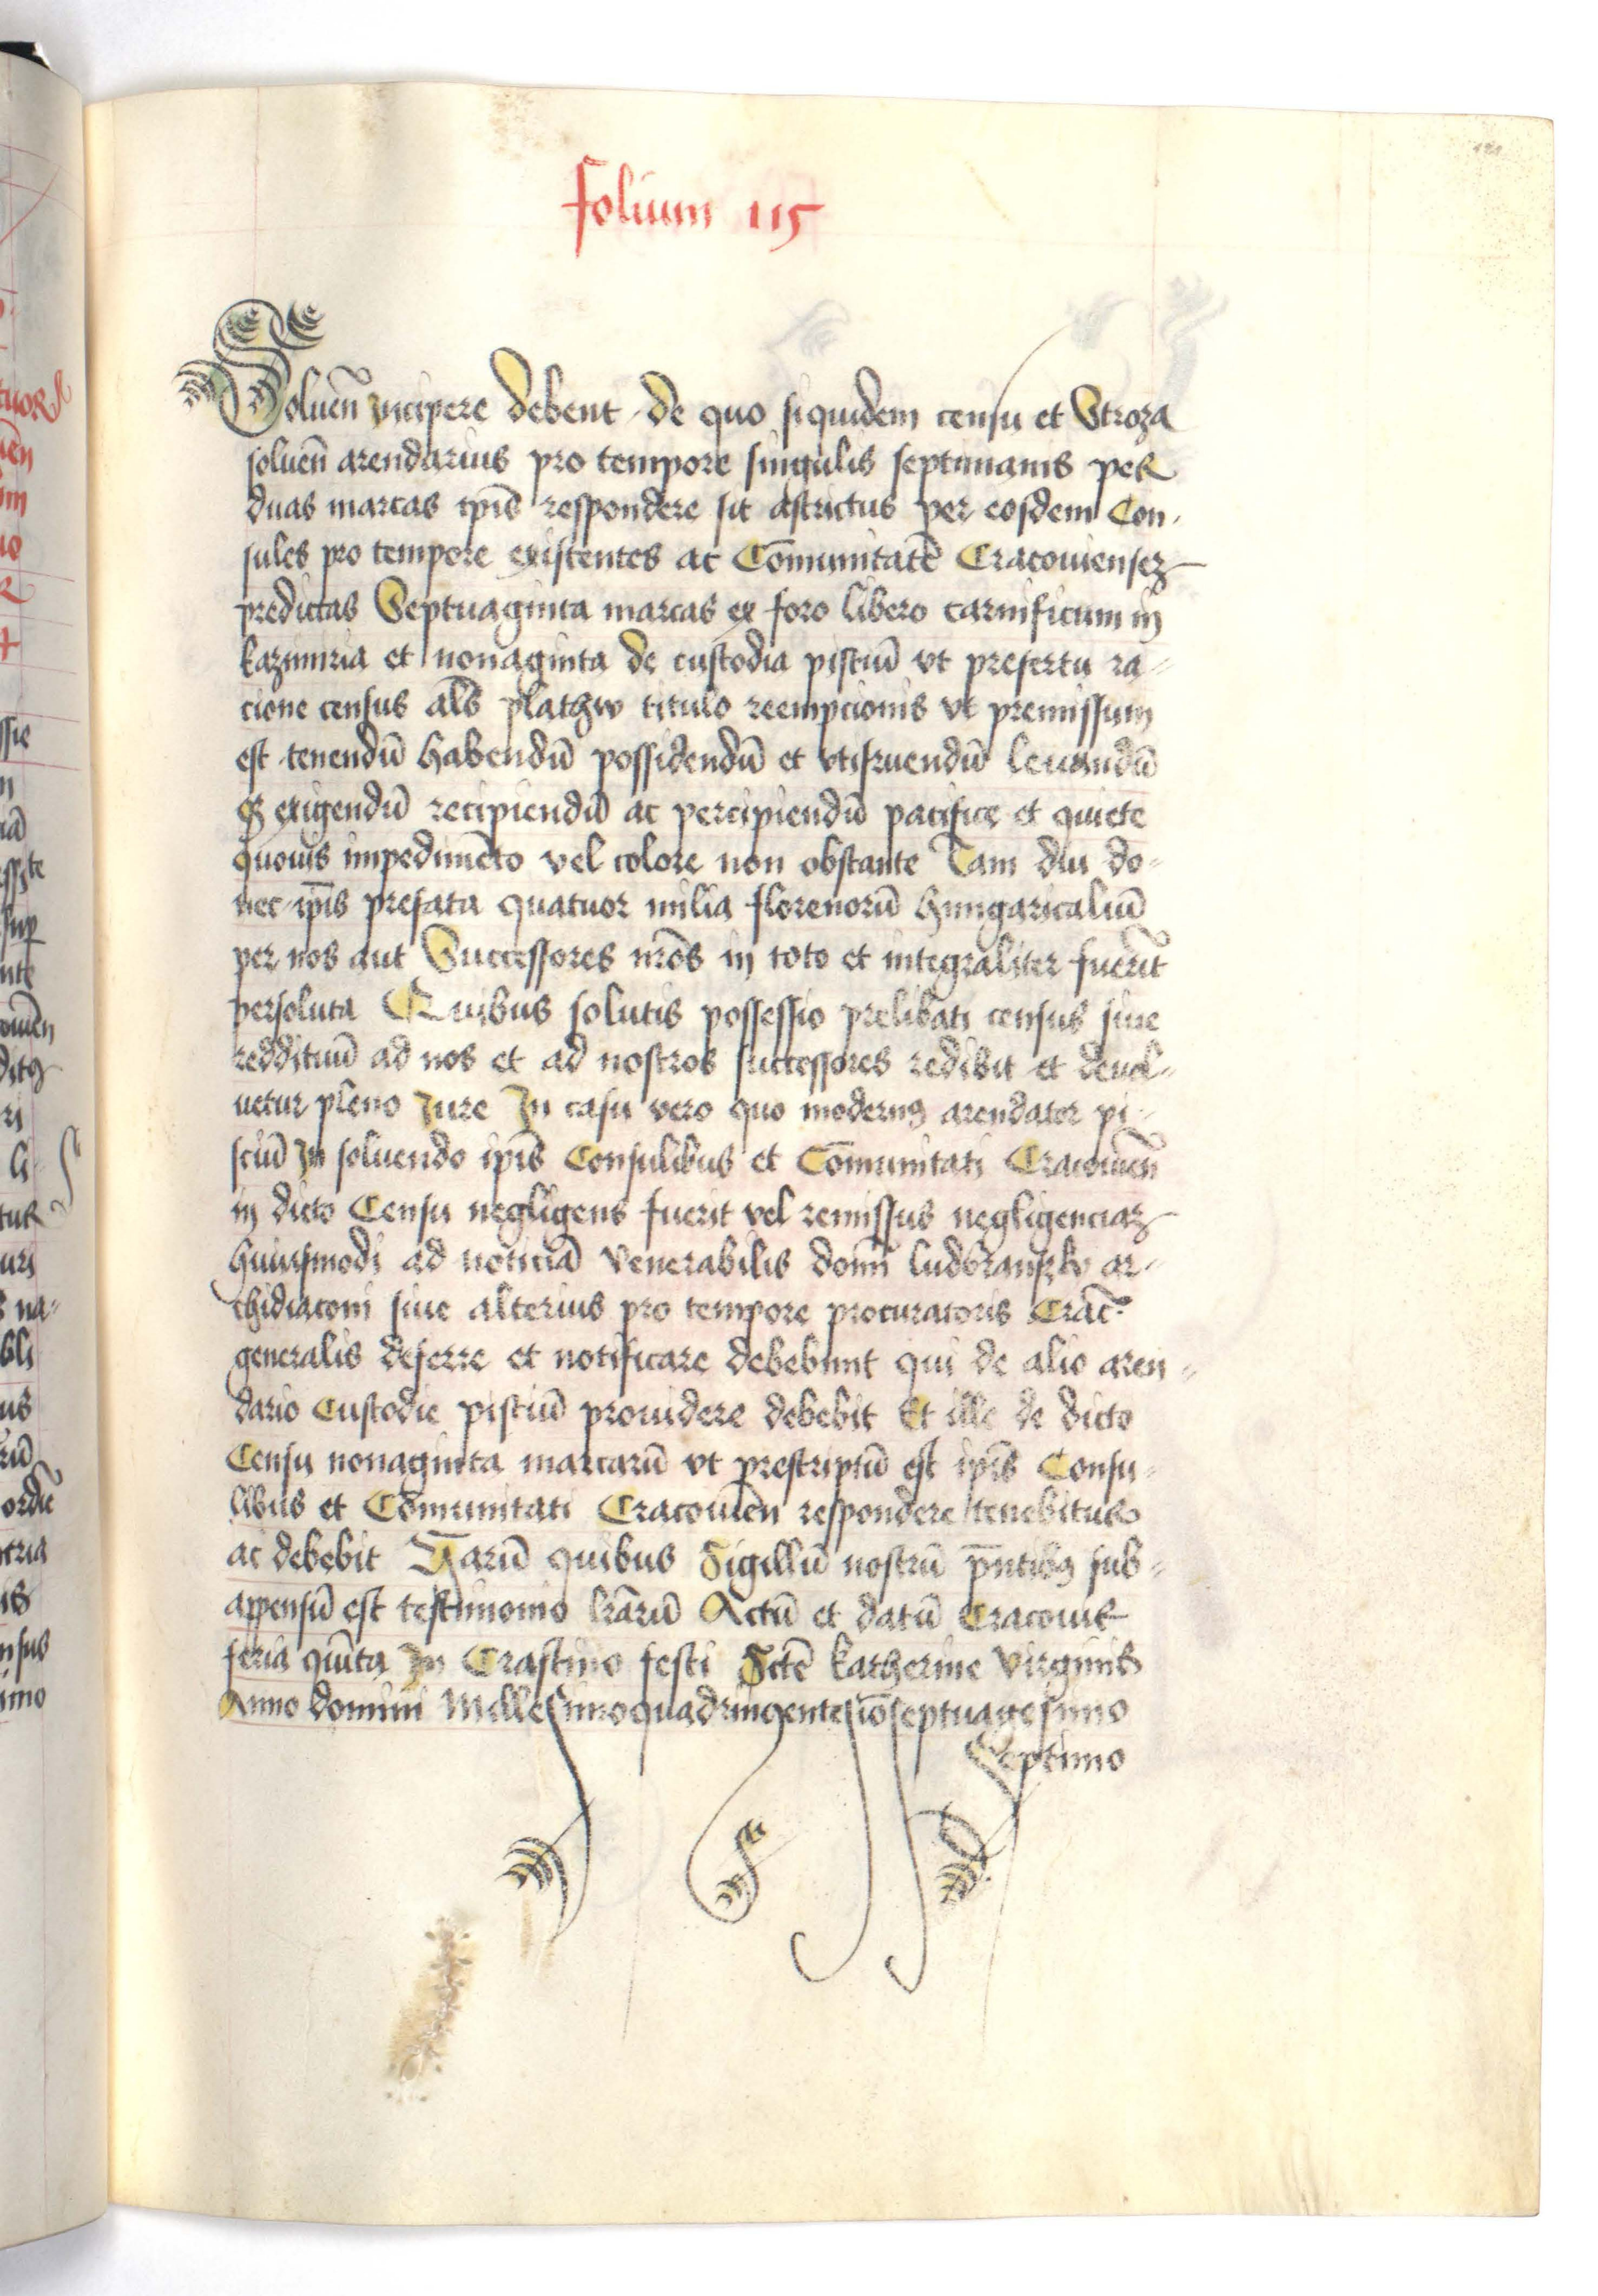 folium 115
Soluen̄ incipere debent de quo siquidem censu et Stroza
soluen̄ arendarius pro tempore singulis septimanis per
duas marcas ip̄is respondere sit astrictus per eosdem Con-
sules pro tempore existentes ac Com̄unitatē Cracouiensez
predictas Septuaginta marcas ex foro libero carnificum in
kazimiria et nonaginta de custodia pisciū vt prefertu ra-
cione census al̄s plathw titulo reempcionis vt premissum
est tenendū habendū possidendū et vtifruendū leuandū
exigendū recipiendū ac percipiendū pacifice et quiete
quouis impedimēto vel colore non obstante Tam diu do-
nec ip̄is prefata quatuor milia florenorū hungaricaliū
per nos aut Successores nr̄os in toto et integraliter fuerīt
persoluta Quibus solutis possessio prelibati census siue
reddituū ad nos et ad nostros successores redibit et deuol-
uetur pleno Jure In casu vero quo modernꝰ arendator pi-
sciū In soluendo ip̄is Consulibus et Com̄unitati Cracouien̄
in dicto Censu negligens fuerit vel remissus negligenciaz
huiusmodi ad noticiā Venerabilis domī ludbranszky ar-
chidiaconi siue alterius pro tempore procuratoris Crac̄
generalis deferre et notificare debebunt qui de alio aren-
dario Custodie pisciū prouidere debebit Et ille de dicto
Censu nonaginta marcarū vt prescriptū est ip̄is Consu-
libus et Com̄unitati Cracouien̄ respondere tenebitur
ac debebit Harū quibus Sigillū nostrū p̄ntibꝰ sub-
appensū est testimonio lr̄arū Actū et datū Cracouie
feria quīta In Crastino festi Sctē katherine Virginis
Anno domini Millesimoquadringentesiōseptuagesimo
Septimo